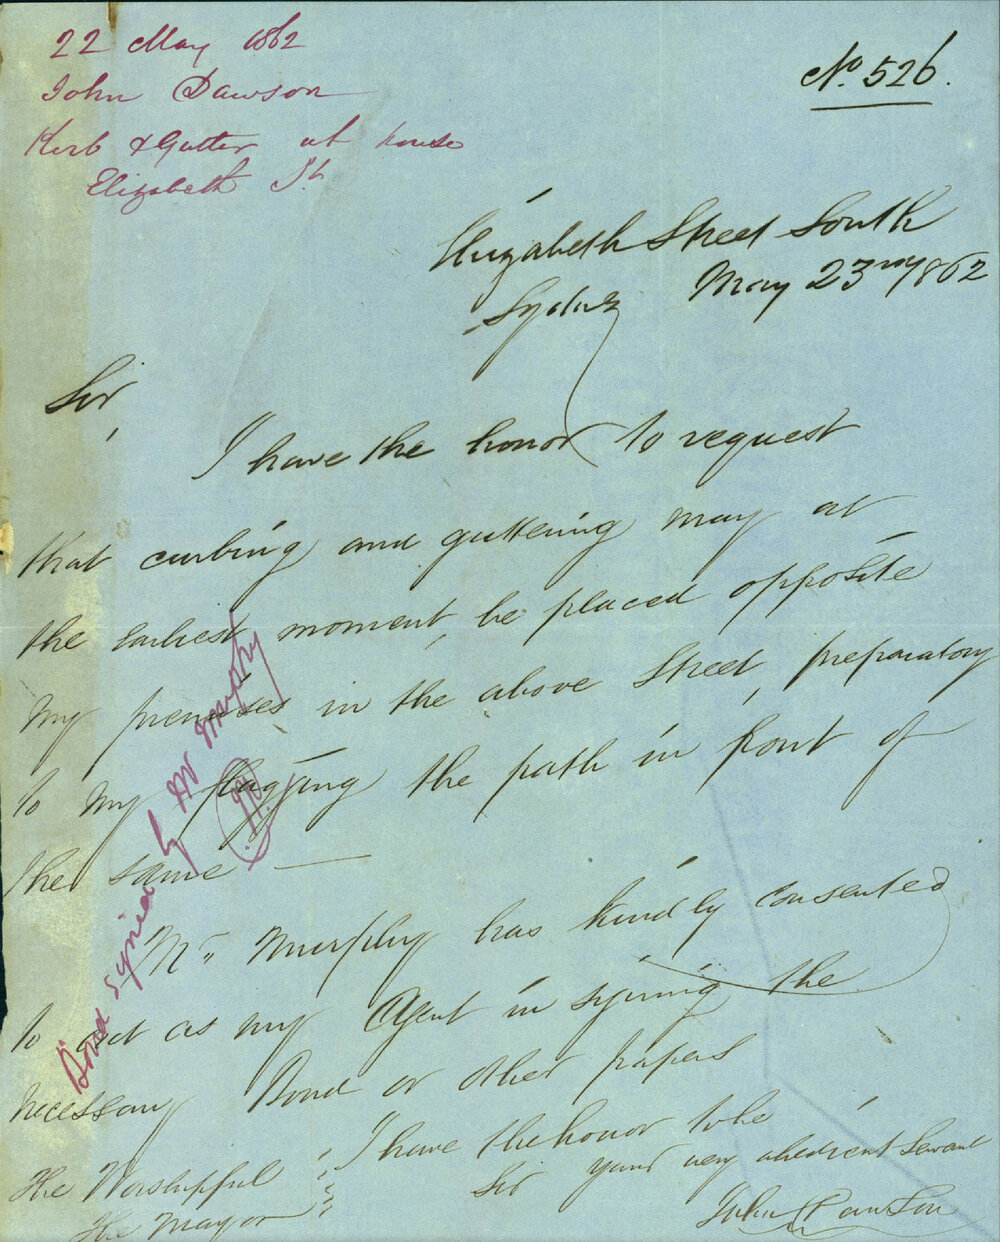 22 May 1862
John Dawson
Kerb & Gutter at house
Elizabeth St
No. 526.
Elizabeth Street South
Sydney May 23rd 1862
Sir,
I have the honor to request
that curbing and guttering may at
the earliest moment, be placed opposite
my premises in the above Street, preparatory
to my flagging the path in front of
the same —
Mr. Murphy has kindly consented
to act as my Agent in signing the
necessary Bond or other papers
I have the honor to be
Sir your very obedient Servant
John Dawson
The Worshipful
The Mayor
Bond signed by Mr Murphy